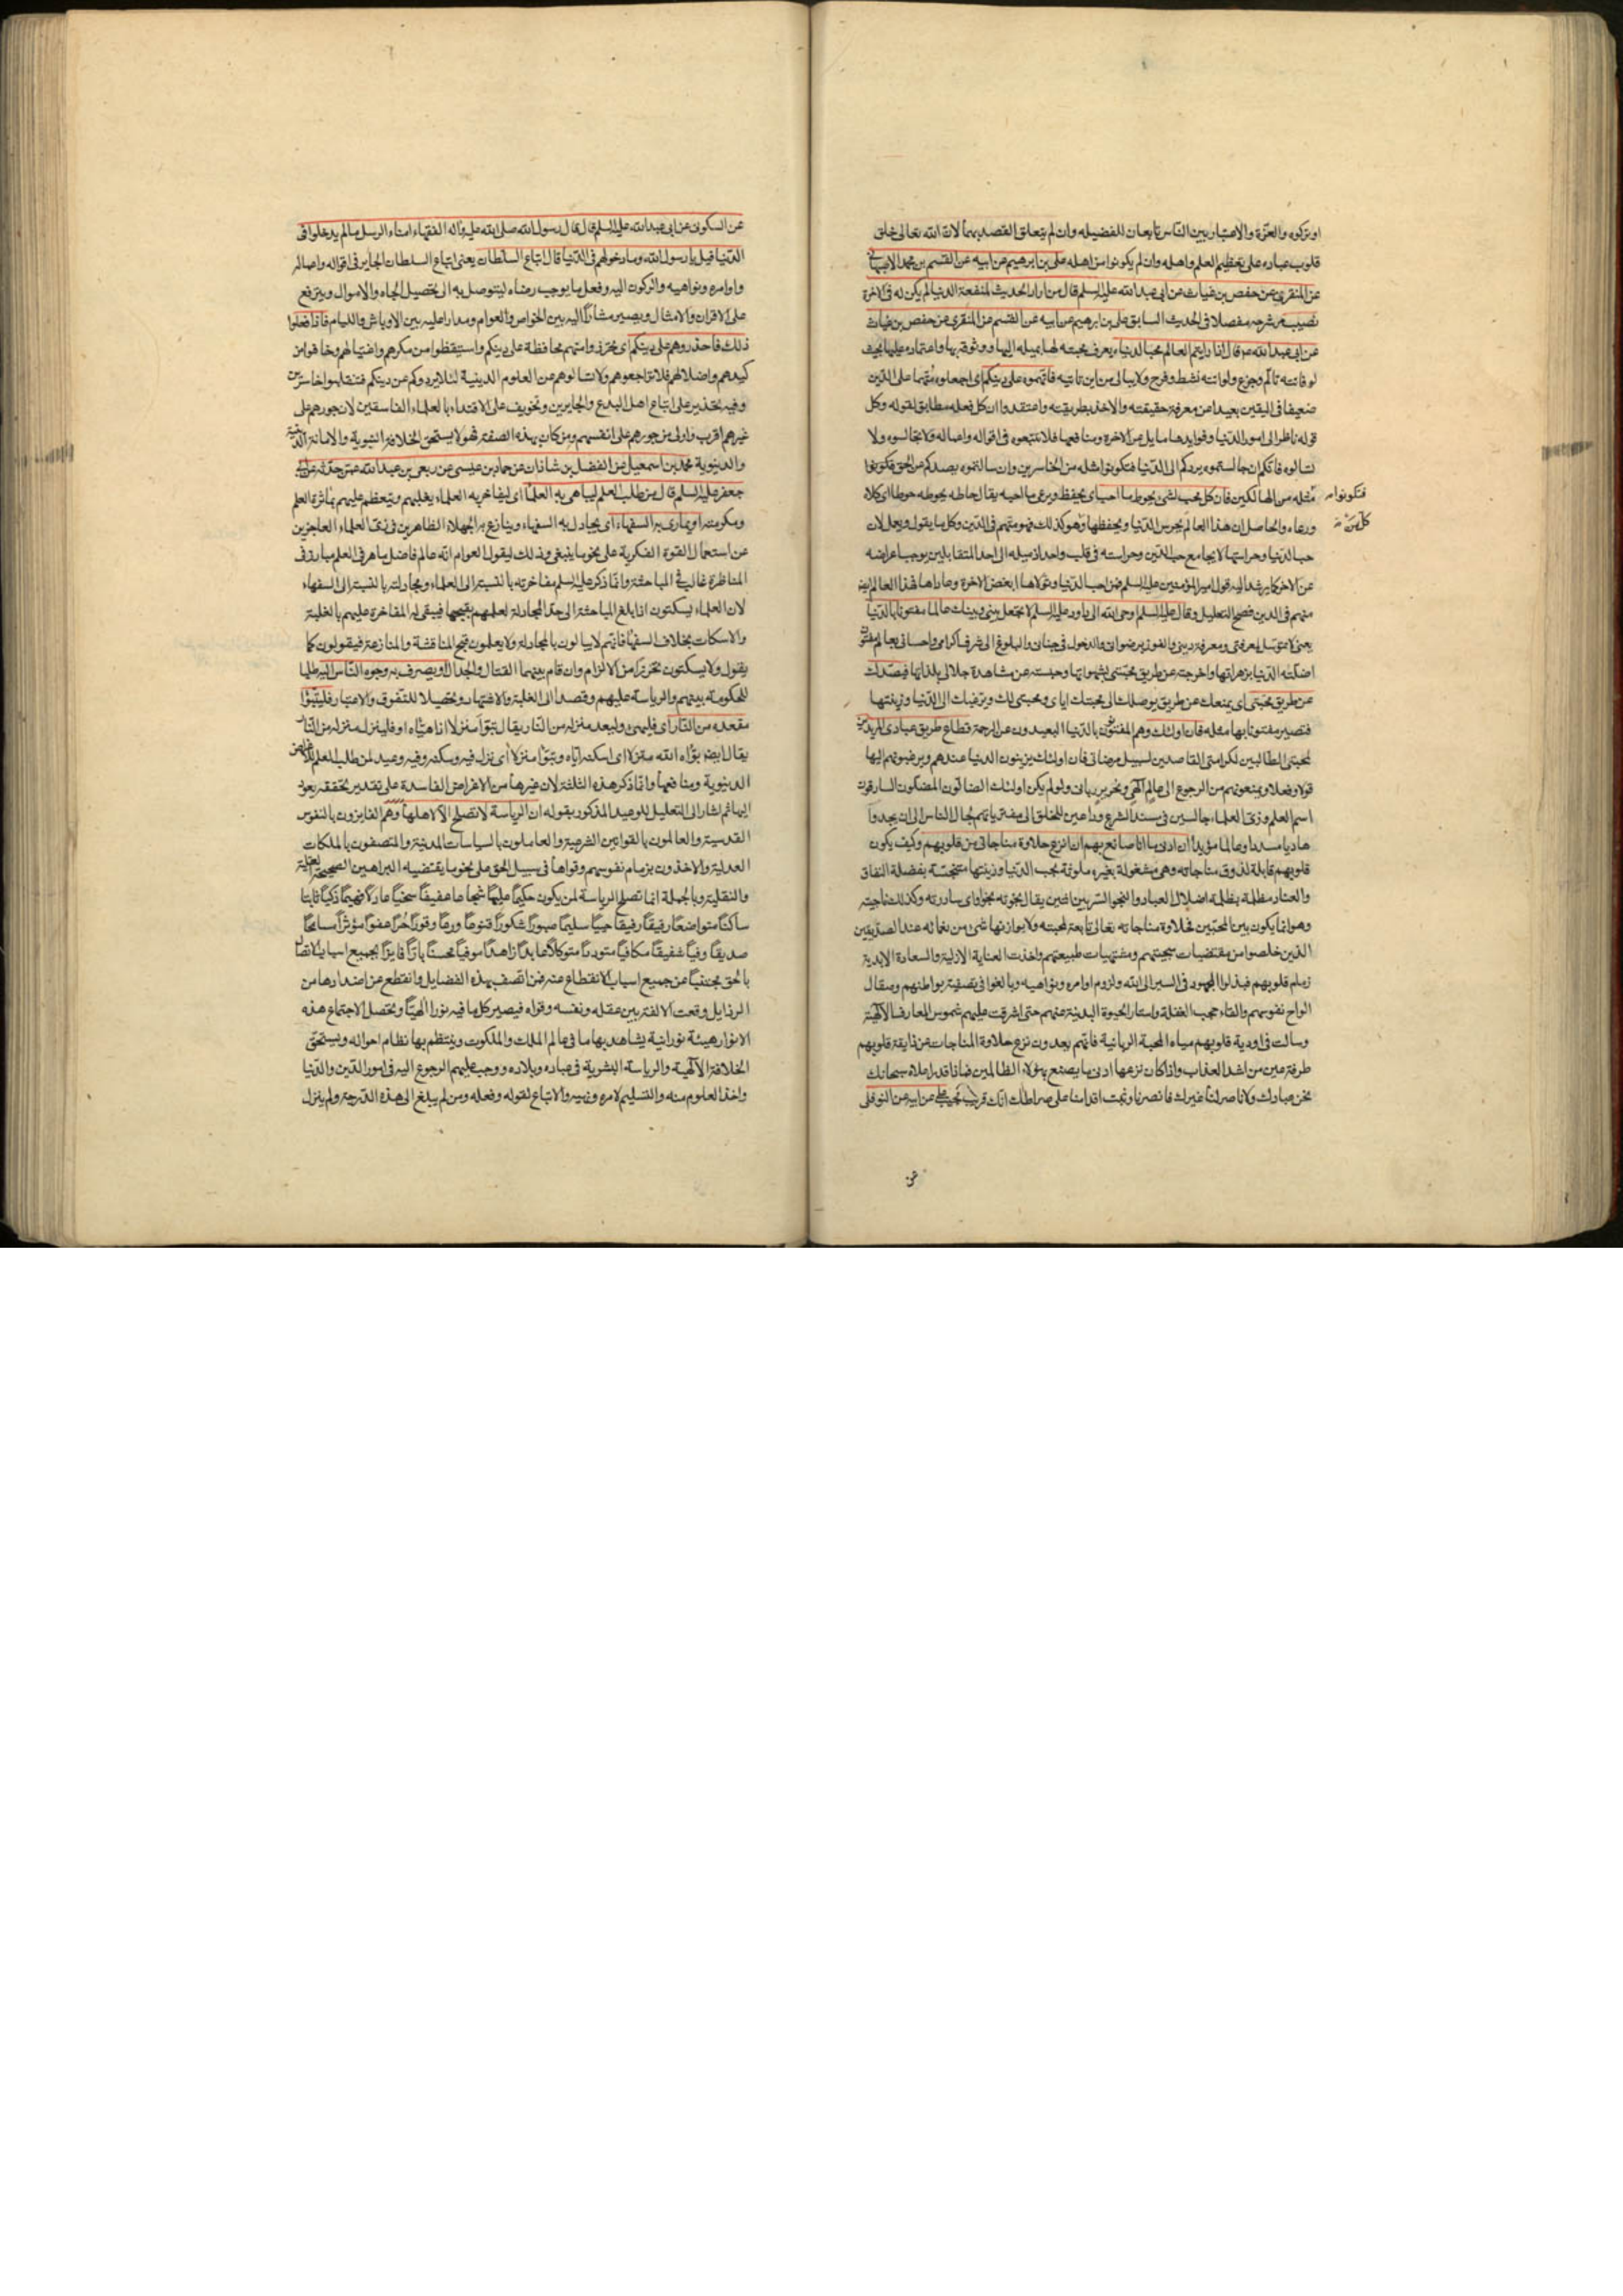 او بتركوه والعزّة والاعتبار بين الناس تابعان للفضيله وان لم يتعلق القصد بهما لان الله تعالى خلق
قلوب عباده على تعظيم العلم واهله وان لم يكونوا من اهله على بن ابرهيم عن ابيه عن القسم بن محمد الاصبهاني
عن المنقري عن حفص بن غياث عن ابي عبد الله عليه السلم قال من اراد الحديث لمنفعة الدنيا لم يكن له في الاخرة
نصيب مر شرحه مفصلا في الحديث السابق على بن ابرهيم عن ابيه عن القسم عن المنقري عن حفص بن غياث
عن ابي عبد الله عم قال اذا رايتم العالم محبا لدنياه يعرف محبته لها بميله اليها ووثوقه بها واعتماده عليها بحيث
لو فاتته تالّم وجزع ولو اتته نشط وفرح ولا يبالى من اين تاتيه فاتهموه على دينكم اى اجعلوه متّهما على الدين
ضعيفا في اليقين بعيدا عن معرفة حقيقته والاخذ بطريقته واعتقدوا ان كل فعله مطابق لقوله وكل
قوله ناظر الى امور الدنيا وفوايدها مايل عن الاخرة ومنافعها فلا تتبعوه في اقواله واعماله ولا تجالسوه ولا
تسالوه فانكم ان جالستموه يردكم الى الدنيا فتكونوا مثله من الخاسرين وان سالتموه يصدكم عن الحق فتكونوا
فتكونوا مثله من الهالكين فان كل محب لشئ يحوط ما احب اى يحفظ ويرعى ما احبه يقال حاطه يحوطه حوطا اى كلاه
ورعاه والحاصل ان هذا العالم يحرس الدنيا ويحفظها وهو كذلك فهو متهم في الدين وكل ما يقول ويعل لان
حب الدنيا وحراستها لا يجامع حب الدين وحراسته في قلب واحد اذ ميله الى احد المتقابلين يوجب اعراضه
عن الاخر كما يرشد اليه قول امير المؤمنين عليه السلم فمن احب الدنيا وتولاها ابغض الاخرة وعاداها فهذا العالم
متهم في الدين فصح التعليل وقال عليه السلم اوحى الله الى داود عليه السلم لا تجعل بيني وبينك عالما مفتونا بالدنيا
يعنى لا تتوسل لمعرفتى ومعرفة دينى والفوز برضوانى والدخول في جنانى والبلوغ الى شرف كرامى واحسانى بعالم مفتون
اضلته الدنيا بزهراتها واخرجته عن طريق محبتى بشهواتها وحبسته عن مشاهدة جلالى بلذاتها فيصدك
عن طريق محبتى اى يمنعك عن طريق يوصلك الى محبتك اياى ومحبتى لك ويرغبك الى الدنيا وزينتها
فتصير مفتونا بها مثله فان اولئك وهم المفتنون بالدنيا البعيدون عن الرحمة قطاع طريق عبادى المريدين
لمحبتى الطالبين لكرامتى القاصدين لسبيل مرضاتى فان اولئك يزينون الدنيا عندهم ويرغبونهم اليها
قولا وفعلا ويمنعونهم من الرجوع الى عالم الهي ونحرير ربانى ولو لم يكن اولئك الضالون المضلون السارقون
اسم العلم وزى العلماء جالسين في مسند الشرع وداعين للخلق الى مفتريانهم لجال الناس الى ان يجدوا
هاديا مسددا وعالما مؤيدا ان ادنى ما انا صانع بهم ان انزع حلاوة مناجاتى من قلوبهم وكيف يكون
قلوبهم قابلة لذوق مناجاته وهى مشغولة بغيره ملوثة بحب الدنيا وزينتها متنجسة بفضلة النفاق
والعناد مظلمة بظلمة اضلال العباد والنجو السّر بين اثنين يقال نجوته نجوا اى ساررته وكذلك ناجيته
وهو انما يكون بين المحبّين فحلاوة مناجاته تعالى تابعة لمحبته ولا يوازنها شئ من نعمائه عند الصديقين
الذين خلصوا من مقتضيات سجيتهم ومشتهيات طبيعتهم واخذت العناية الازلية والسعادة الابدية
زمام قلوبهم فبذلوا الجهود في السير الى الله ولزوم اوامره ونواهيه وبالغوا في تصفية بواطنهم وصقال
الواح نفوسهم والقاء حجب الغفلة واستار الحيوة البدنية عنهم حتى اشرقت عليهم شموس المعارف الالهية
وسالت في اودية قلوبهم مياه المحبة الربانية فانهم يعدون نزع حلاوة المناجات عن ذايقة قلوبهم
طرفة عين من اشد العذاب واذا كان نزعها ادنى ما يصنع بهؤلاء الظالمين فما اقدر اعلاه سبحانك
نحن عبادك ولا ناصر لنا غيرك فانصرنا وثبت اقدامنا على صراطك انك قريب مجيب على عن ابيه عن النوفلي
عن
عن السكوني عن ابي عبد الله عليه السلم قال قال رسول الله صلى الله عليه واله الفقهاء امناء الرسل ما لم يدخلوا في
الدنيا قيل يا رسول الله وما دخولهم في الدنيا قال اتباع السلطان يعنى اتباع السلطان الجاير في اقواله واعماله
واوامره ونواهيه والركون اليه وفعل ما يوجب رضاه ليتوصل به الى تحصيل الجاه والاموال ويترفع
على الاقران والامثال ويصير مشارا اليه بين الخواص والعوام ومدارا عليه بين الاوباش واللئام فاذا فعلوا
ذلك فاحذروهم على دينكم اى تحرزوا منهم محافظة على دينكم واستيقظوا من مكرهم واغتيالهم وخافوا من
كيدهم واضلالهم فلا تراجعوهم ولا تسالوهم عن العلوم الدينية لئلا يردوكم عن دينكم فتنقلبوا خاسرين
وفيه تحذير على اتباع اهل البدع والجايرين وتخويف على الاقتداء بالعلماء الفاسقين لان جورهم على
غيرهم اقرب واولى من جورهم على انفسهم ومن كان بهذه الصفة فهو لا يستحق الخلافة النبوية والامانة الدينية
والدنيوية محمد بن اسمعيل عن الفضل بن شاذان عن حماد بن عيسى عن ربعى بن عبد الله عمن حدثه عن ابي
جعفر عليه السلم قال من طلب العلم ليباهى به العلماء اى ليفاخر به العلماء يغلبهم ويتعظم عليهم بماثرة العلم
ومكرمته او يمارى به السفهاء اى يجادل به السفهاء وينازع به الجهلاء الظاهرين في زى العلماء العاجزين
عن استعمال القوة الفكرية على نحو ما ينبغى وذلك ليقول العوام انه عالم فاضل ماهر في العلم مبارز في
المناظرة غالب في المباحثة وانما ذكر عليه السلم مفاخرته بالنسبة الى العلماء ومجادلته بالنسبة الى السفهاء
لان العلماء يسكتون اذا بلغ المباحثة الى حد المجادلة لعلمهم بقبحها فيبقى له المفاخرة عليهم بالغلبة
والاسكات بخلاف السفهاء فانهم لا يبالون بالمجادلة ولا يعلمون قبح المناقشة والمنازعة فيقولون كما
يقول ولا يسكتون تحرزا من الالزام وان قام بينهما القتال والجدال او يصرف به وجوه الناس اليه طلبا
للحكومة بينهم والرياسة عليهم وقصدا الى الغلبة والاشتهار وتحصيلا للتفوق والاعتبار فليتبوا
مقعده من النار اى فليهيئ وليعد منزله من النار يقال تبوا منزلا اذا هيّاه او فلينزل منزله من النار
يقال ايضا بوّاه الله منزلا اى اسكنه اياه وتبوّا منزلا اى نزل فيه وسكنه وفيه وعيد لمن طلب العلم للاغراض
الدنيوية ومنافعها وانما ذكر هذه الثلثة لان غيرها من الاغراض الفاسدة على تقدير تحققه يعود
اليها ثم اشار الى التعليل للوعيد المذكور بقوله ان الرياسة لا تصلح الا لاهلها وهم الفايزون بالنفوس
القدسية والعالمون بالقوانين الشرعية والعاملون بالسياسات المدنية والمتصفون بالملكات
العدلية والاخذون بزمام نفوسهم وقواها في سبيل الحق على نحو ما يقتضيه البراهين الصحيحة العقلية
والنقلية وبالجملة انما تصلح الرياسة لمن يكون حكيما عليما شجاعا عفيفا سخيا عادلا فهيما ذكيا ثابتا
ساكنا متواضعا رقيقا رفيقا حييا سليما صبورا شكورا قنوعا ورعا وقورا حرا عفوا مؤثرا سامحا
صديقا وفيا شفيقا مكافيا متوددا متوكلا عابدا زاهدا موفيا محسنا بارا فايزا بجميع اسباب الاتصال
بالحق مجتنبا عن جميع اسباب الانقطاع عنه فمن اتصف بهذه الفضايل وانقطع عن اضدادها من
الرذايل وقعت الالفة بين عقله ونفسه وقواه فيصير كل ما فيه نورا الهيا ويحصل لاجتماع هذه
الانوار هيئة نورانية يشاهد بها ما في عالم الملك والملكوت وينتظم بها نظام احواله ويستحق
الخلافة الالهية والرياسة البشرية في عباده وبلاده ووجب عليهم الرجوع اليه في امور الدين والدنيا
واخذ العلوم منه والتسليم لامره ونهيه والاتباع لقوله وفعله ومن لم يبلغ الى هذه الدرجة ولم ينزل